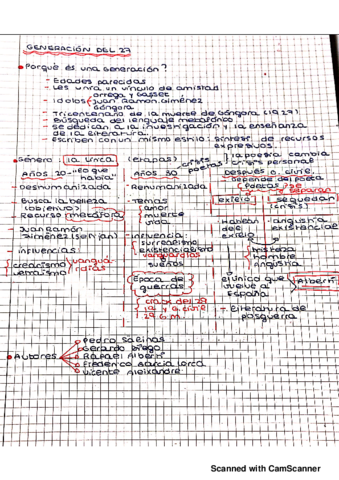 GENERACIÓN DEL 27
• Porqué és una generación?
- Edades parecidas
- Les unía un vínculo de amistad
- Idolos ortega y Gasset
Juan Ramón Jiménez
Góngora
- Tricentenario de la muerte de Góngora (1927)
- Búsqueda del lenguaje metafórico
- Se dedican a la investigación y la enseñanza
de la literatura.
- Escriben con un mismo estilo: síntesis de recursos
expresivos.
• Género: lírica (etapas) crisis poetas la poesía cambia
crisis personal
Años 20 - "Lo que había" Años 30 Después G. Civil
- Deshumanizada - Rehumanizada depende del poeta
(Poetas) se separan
- Busca la belleza - Temas exilio se quedan
(objetivo) amor (crisis)
- Recurso metáfora muerte
vida
- Juan Ramón Jiménez - Influencia: - Hablan del exilio - angustia existencial
- influencias surrealismo
existencialismo historia
creacismo vanguardias vanguardias hombre
ultraismo sueños angustia
- Época de guerras - El único que vuelve a España Alberti
crack del 29
1ª y G. Civil - Literatura de posguerra
2ª G.M.
• Autores
Pedro Salinas
Gerardo Diego
Rafael Alberti
Frederico García Lorca
Vicente Aleixandre
Scanned with CamScanner